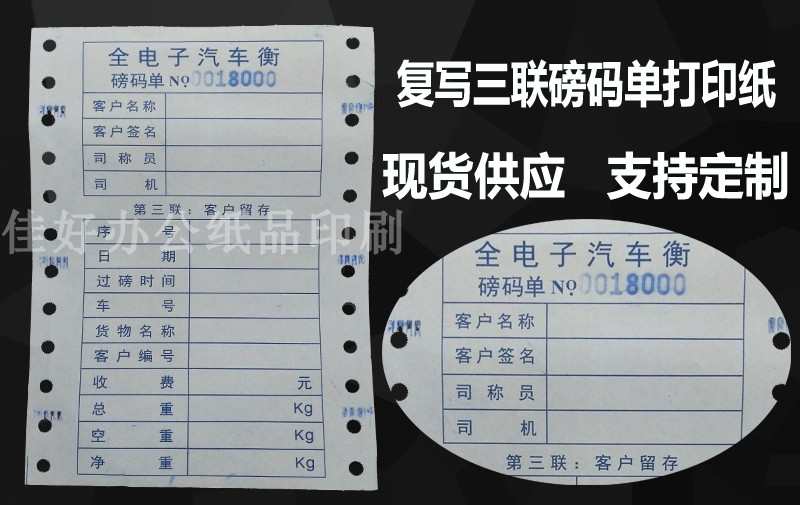 全电子汽车衡
磅码单 №0018000
客户名称
客户签名
司称员
司机
第三联：客户留存
序号
日期
过磅时间
车号
货物名称
客户编号
收费 元
总重 Kg
空重 Kg
净重 Kg
佳好办公纸品印刷
复写三联磅码单打印纸
现货供应 支持定制
全电子汽车衡
磅码单 №0018000
客户名称
客户签名
司称员
司机
第三联：客户留存